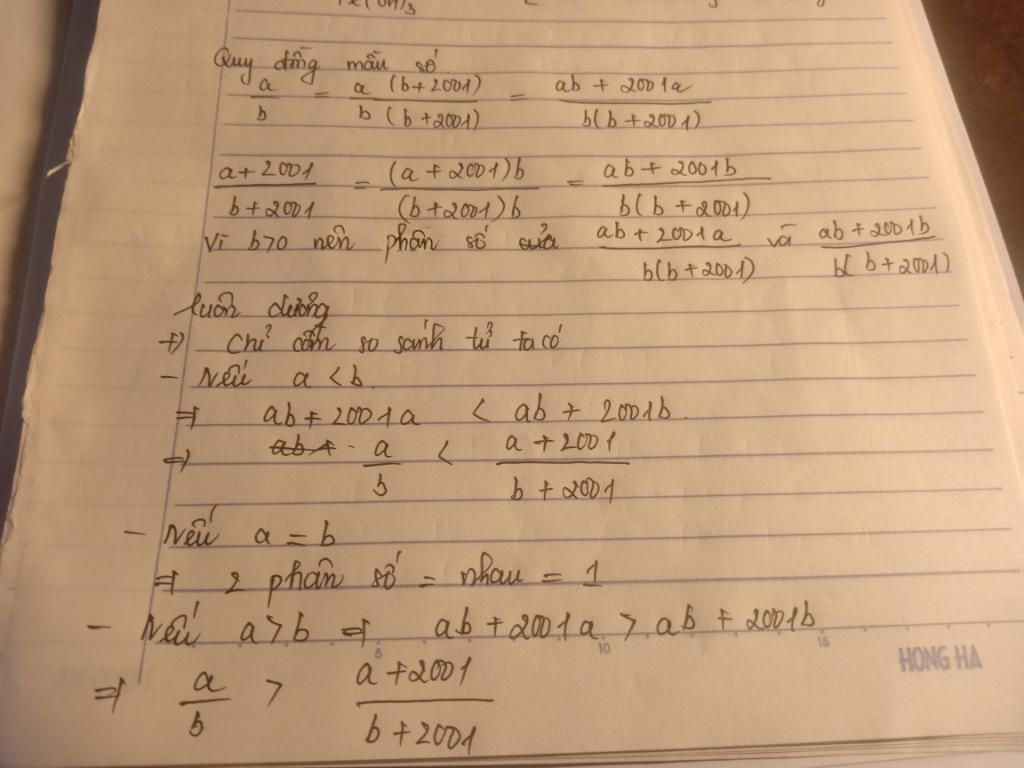 Fe(OH)3
Quy đồng mẫu số
a/b = a (b+2001)/b (b+2001) = ab + 2001a/b(b+2001)
a+2001/b+2001 = (a+2001)b/(b+2001)b = ab+2001b/b(b+2001)
Vì b>0 nên phân số của ab+2001a/b(b+2001) và ab+2001b/b(b+2001)
luôn dương
+) Chỉ cần so sánh tử ta có
- Nếu a < b
=> ab+2001a < ab + 2001b.
=> ab + a/b < a+2001/b+2001
- Nếu a = b
=> 2 phân số = nhau = 1
- Nếu a > b => ab+2001a > ab + 2001b
5 10 15
HONG HA
=> a/b > a+2001/b+2001